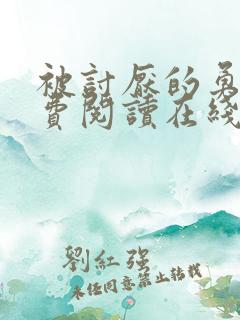 被討厭的勇
費閱讀在綫
劉紅强
未經同意禁止轉載